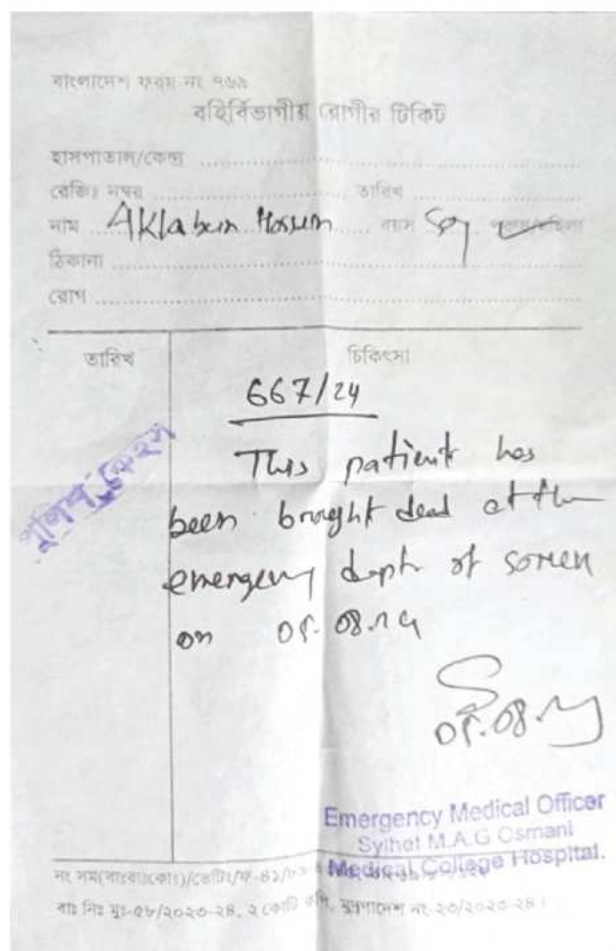 বাংলাদেশ ফরম নং ৭৬৯
বহির্বিভাগীয় রোগীর টিকিট
হাসপাতাল/কেন্দ্র
রেজিঃ নম্বর তারিখ
নাম Aklabur বয়স পুরুষ/মহিলা
ঠিকানা
রোগ
তারিখ চিকিৎসা
667/24
পুলিশ কেইস
This patient has
been brought dead at the
emergency dept of SOMCH
on 05.08.24
05.08.24
Emergency Medical Officer
Sylhet M.A.G Osmani
Medical College Hospital.
বাঃ নিঃ মুঃ-৫৮/২০২৩-২৪, ২ কোটি কপি, মুদ্রণাদেশ নং-২৩/২০২৩-২৪।